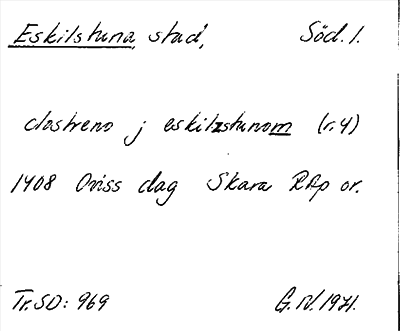 Eskilstuna, stad, Söd. 1.
clostreno j eskilzstunom (r.4)
1408 Oviss dag Skara RAp or.
Tr. SD: 969 G.N. 1971.